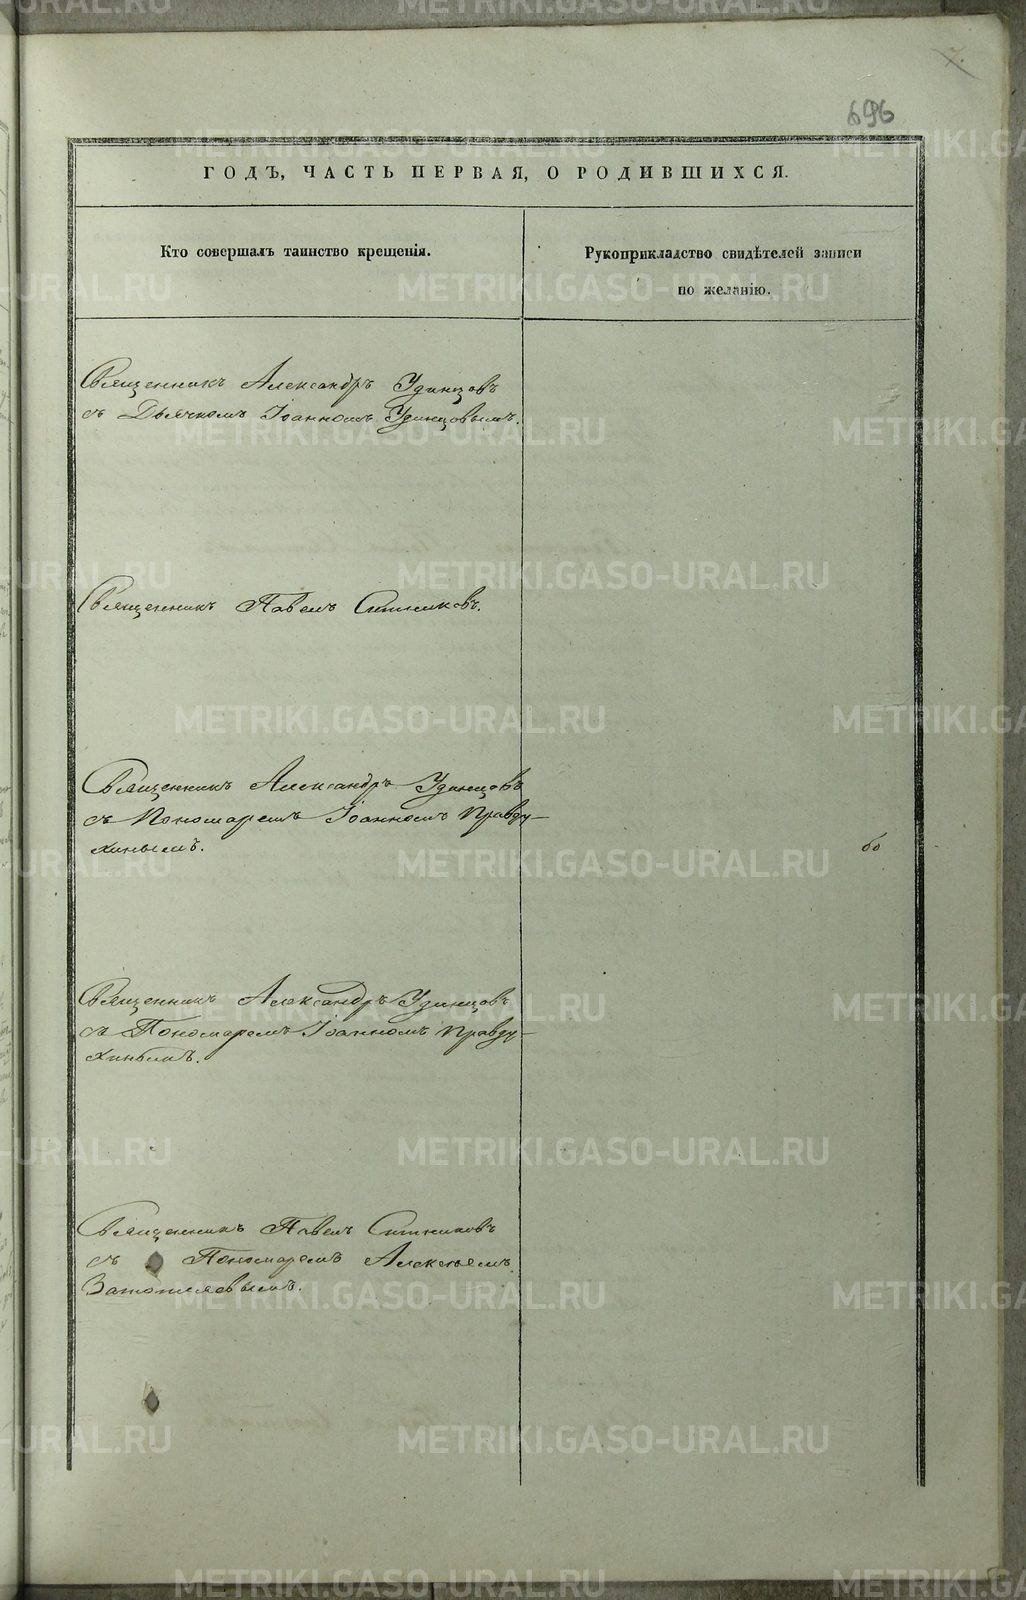 7.
696
ГОДЪ, ЧАСТЬ ПЕРВАЯ, О РОДИВШИХСЯ.
Кто совершалъ таинство крещенія.
Рукоприкладство свидѣтелей записи
по желанію.
Священникъ Александръ Удинцовъ
съ Дьячкомъ Іоанномъ Удинцовымъ.
Священникъ Павелъ Ситниковъ.
Священникъ Александръ Удинцовъ
съ Пономаремъ Іоанномъ Правду-
хинымъ.
Священникъ Александръ Удинцовъ
съ Пономаремъ Іоанномъ Правду-
хинымъ.
Священникъ Павелъ Ситниковъ
съ Пономаремъ Алексѣемъ
METRIKI.GASO-URAL.RU